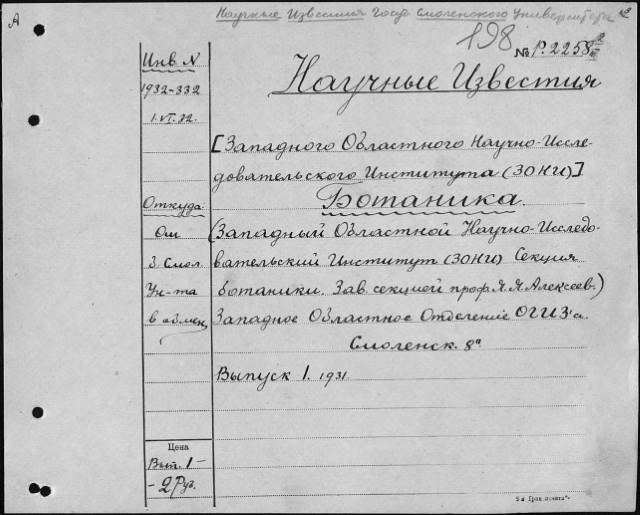 Научные Известия Госуд Смоленского Университета
А
198
№ Р. 2258
Инв. N
1932-332
1.VI.32.
Научные Известия
[Западного Областного Научно-Иссле-
довательского Института (ЗОНИ)]
Ботаника.
Откуда:
От
б. Смол.
Ун-та
в обмен
(Западный Областной Научно-Исследо-
вательский Институт (ЗОНИ) Секция
ботаники. Зав. секцией проф. Я.Я. Алексеев.)
Западное Областное Отделение ОГИЗ'а.
Смоленск. 8°
Выпуск 1. 1931
Цена
Вып. 1 –
– 2 Руб.